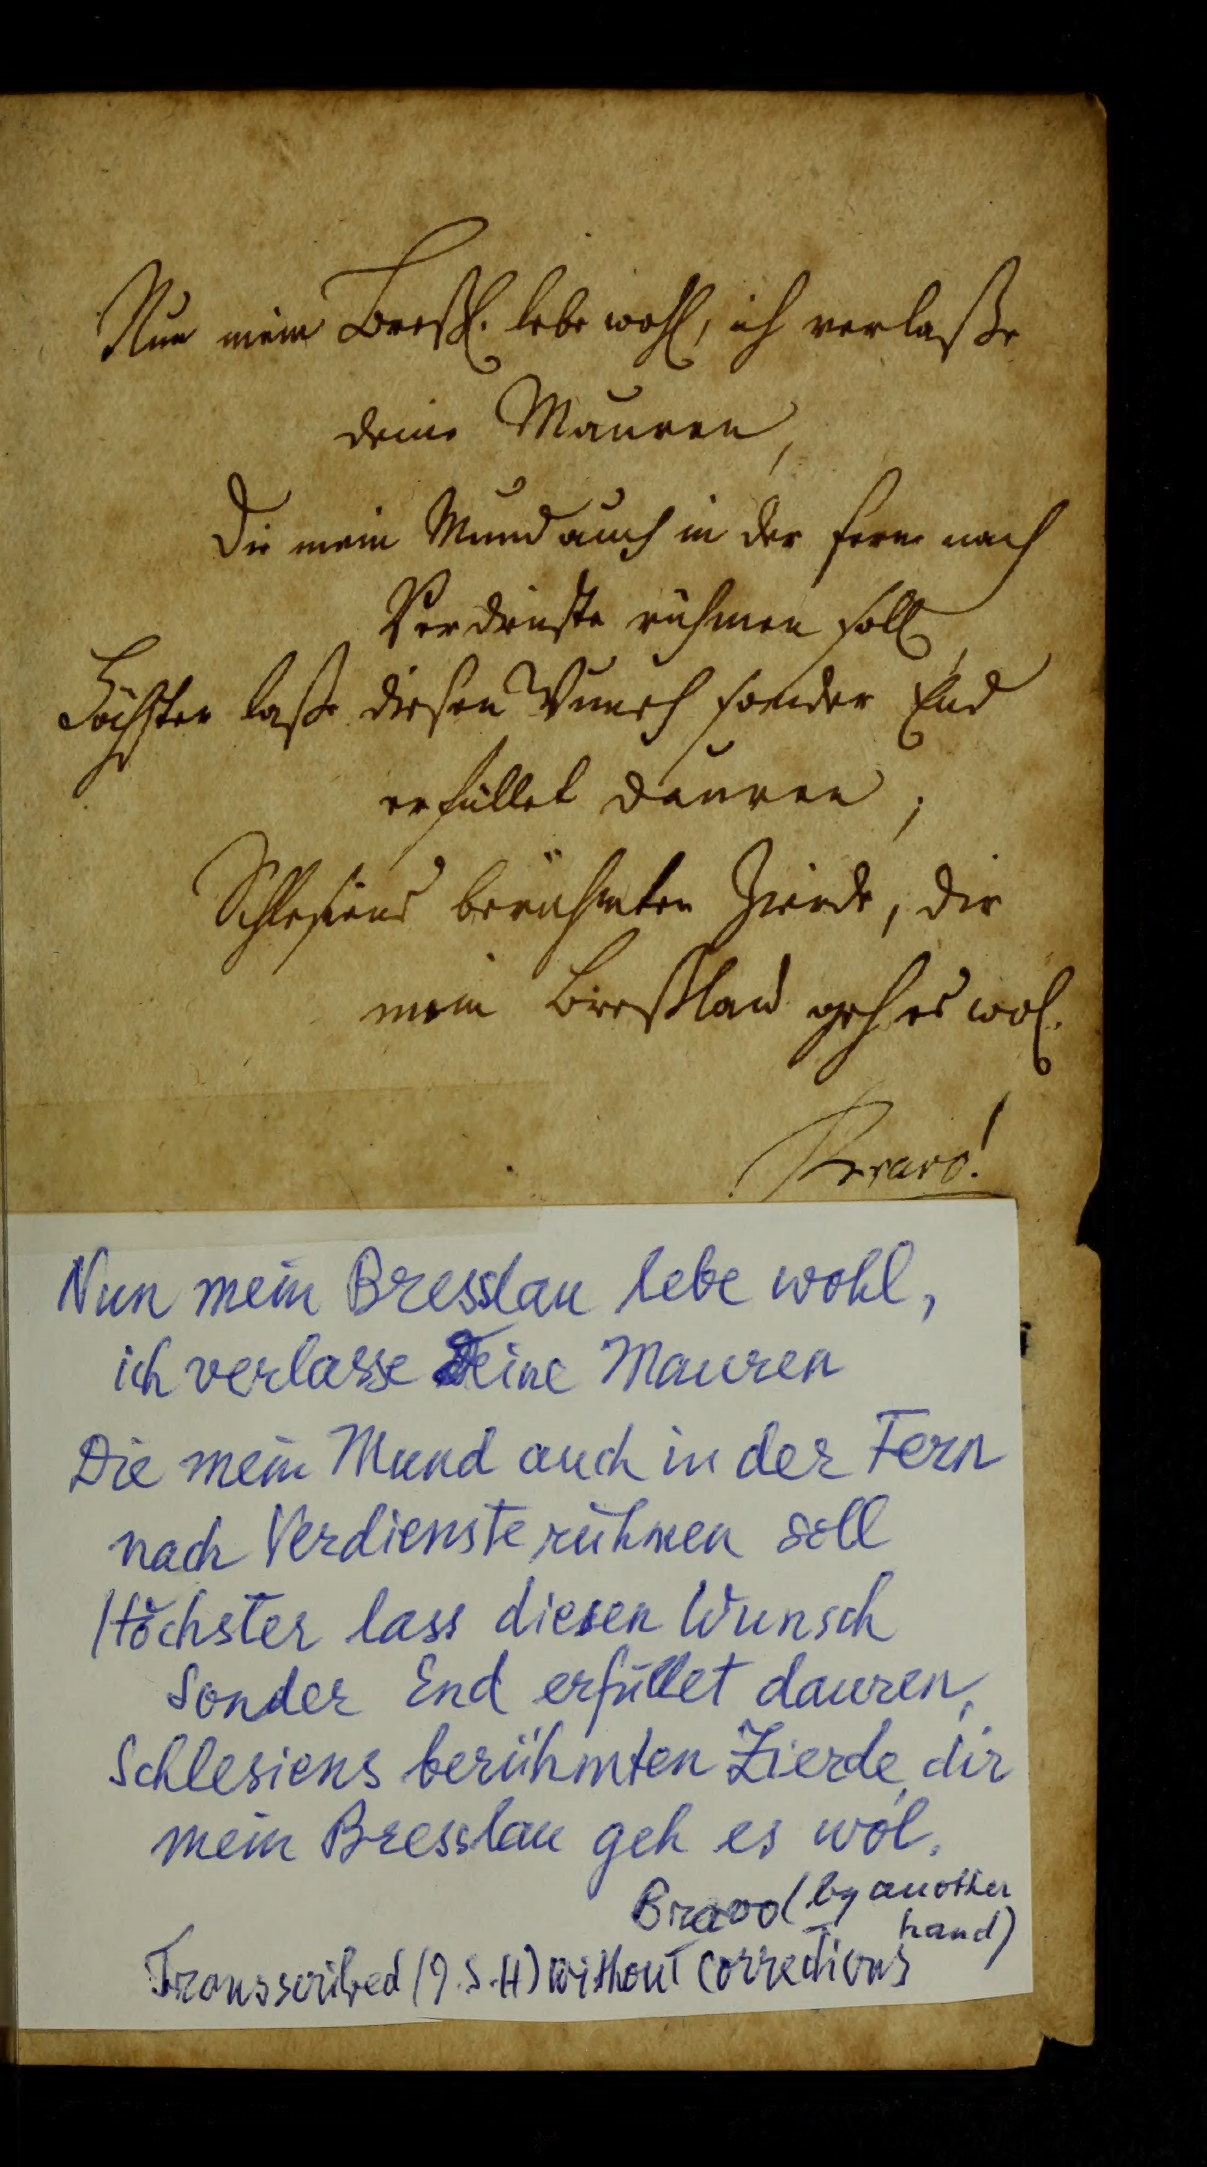 Nun mein Breßl. lebe wohl, ich verlaße
deine Mauren,
Die mein Mund auch in der fern nach
Verdienste rühmen soll,
Höchster laße diesen Wunsch sonder End
erfüllet dauren;
Schlesiens berühmten Zierde, dir
mein Breßlau geh es wol.
Bravo!
Nun mein Bresslau lebe wohl,
ich verlasse Deine Mauren
Die mein Mund auch in der Fern
nach Verdienste rühmen soll
Höchster lass diesen Wunsch
sonder End erfüllet dauren,
Schlesiens berühmten Zierde, dir
mein Bresslau geh es wol.
Bravo (by another
hand)
Transscribed (J.S.H) without corrections